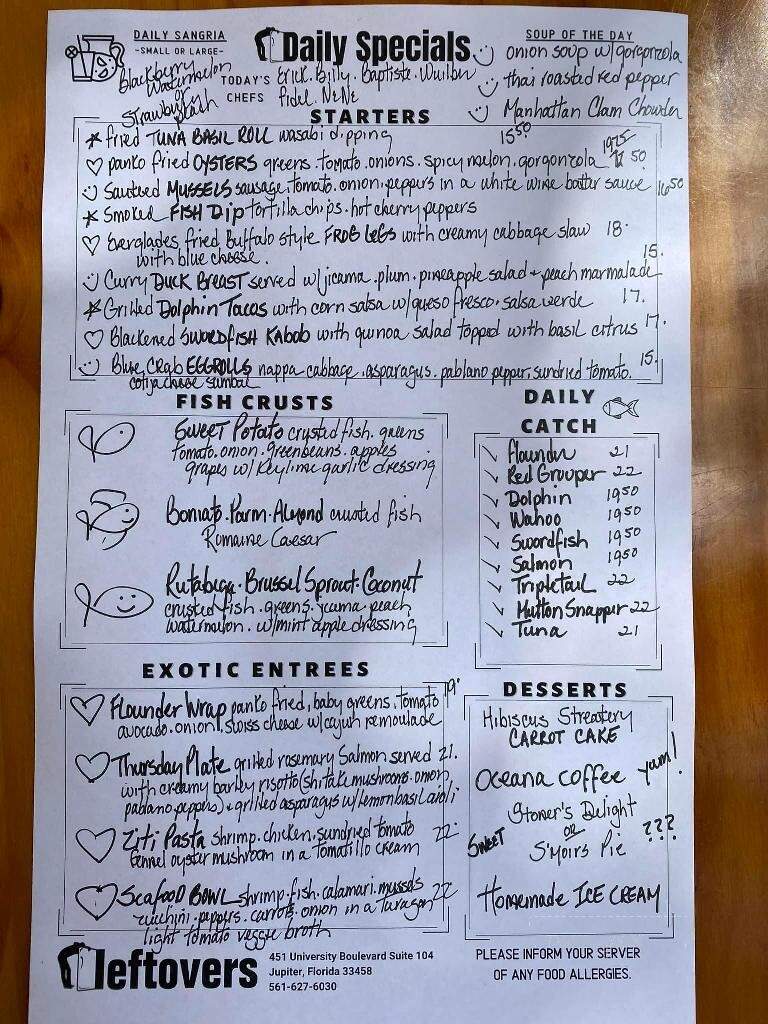 DAILY SANGRIA
-SMALL OR LARGE-
Blackberry
Watermelon
or
Strawberry
peach
Daily Specials
TODAY'S CHEFS
Erick. Billy. Baptiste. Wuilber
Fidel. NeNe
SOUP OF THE DAY
onion soup w/gorgonzola
thai roasted red pepper
Manhattan Clam Chowder
STARTERS
fried TUNA BASIL ROLL wasabi dipping 15.50
panko fried OYSTERS greens. tomato. onions. spicy melon. gorgonzola 50
Sauteed MUSSELS sausage. tomato. onion. peppers in a white wine butter sauce 16.50
Smoked FISH DIP tortilla chips. hot cherry peppers
Everglades fried Buffalo style FROG LEGS with creamy cabbage slaw 18.
with blue cheese.
Curry DUCK BREAST served w/jicama. plum. pineapple salad + peach marmalade 15.
Grilled Dolphin Tacos with corn salsa w/queso fresco. salsa verde 17.
Blackened SWORDFISH KABOB with quinoa salad topped with basil citrus 17.
Blue Crab EGGROLLS nappa cabbage. asparagus. pablano pepper. sundried tomato. 15.
cotija cheese sambal
FISH CRUSTS
Sweet Potato crusted fish. greens
tomato. onion. greenbeans. apples
grapes w/ keylime garlic dressing
Boniato. Parm. Almond crusted fish
Romaine Caesar
Rutabega. Brussel Sprout. Coconut
crusted fish. greens. jicama peach
watermelon. w/mint apple dressing
DAILY CATCH
Flounder 21
Red Grouper 22
Dolphin 19.50
Wahoo 19.50
Swordfish 19.50
Salmon 19.50
Tripletail 22
Mutton Snapper 22
Tuna 21
EXOTIC ENTREES
Flounder Wrap panko fried, baby greens, tomato 19.
avocado. onion. swiss cheese w/cajun remoulade
Thursday Plate grilled rosemary Salmon served 21.
with creamy barley risotto (shitake mushrooms. onion
pablano peppers) + grilled asparagus w/lemon basil aioli
Ziti Pasta shrimp. chicken. sundried tomato 22.
fennel oyster mushroom in a tomatillo cream
Seafood Bowl shrimp. fish. calamari. mussels 22
zucchini. peppers. carrots. onion in a taragon
light tomato veggie broth
DESSERTS
Hibiscus Streatery
CARROT CAKE
Oceana coffee yum!
Stoner's Delight
or
Sweet S'Moir's Pie ???
Homemade ICE CREAM
leftovers
451 University Boulevard Suite 104
Jupiter, Florida 33458
561-627-6030
PLEASE INFORM YOUR SERVER
OF ANY FOOD ALLERGIES.